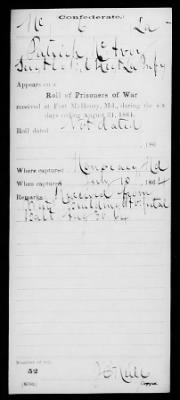 Confederate.
Mc 6 La
Patrick Mc
Sergt Co 6 Regt La Infy
Appears on a
Roll of Prisoners of War
received at Fort McHenry, Md., during the six
days ending August 31, 1864.
Roll dated Not dated
, 186
Where captured Monocacy Md
When captured July 10, 1864
Remarks Received from
Hospital
Balt Aug 30 64
Number of roll:
52
Copyist.